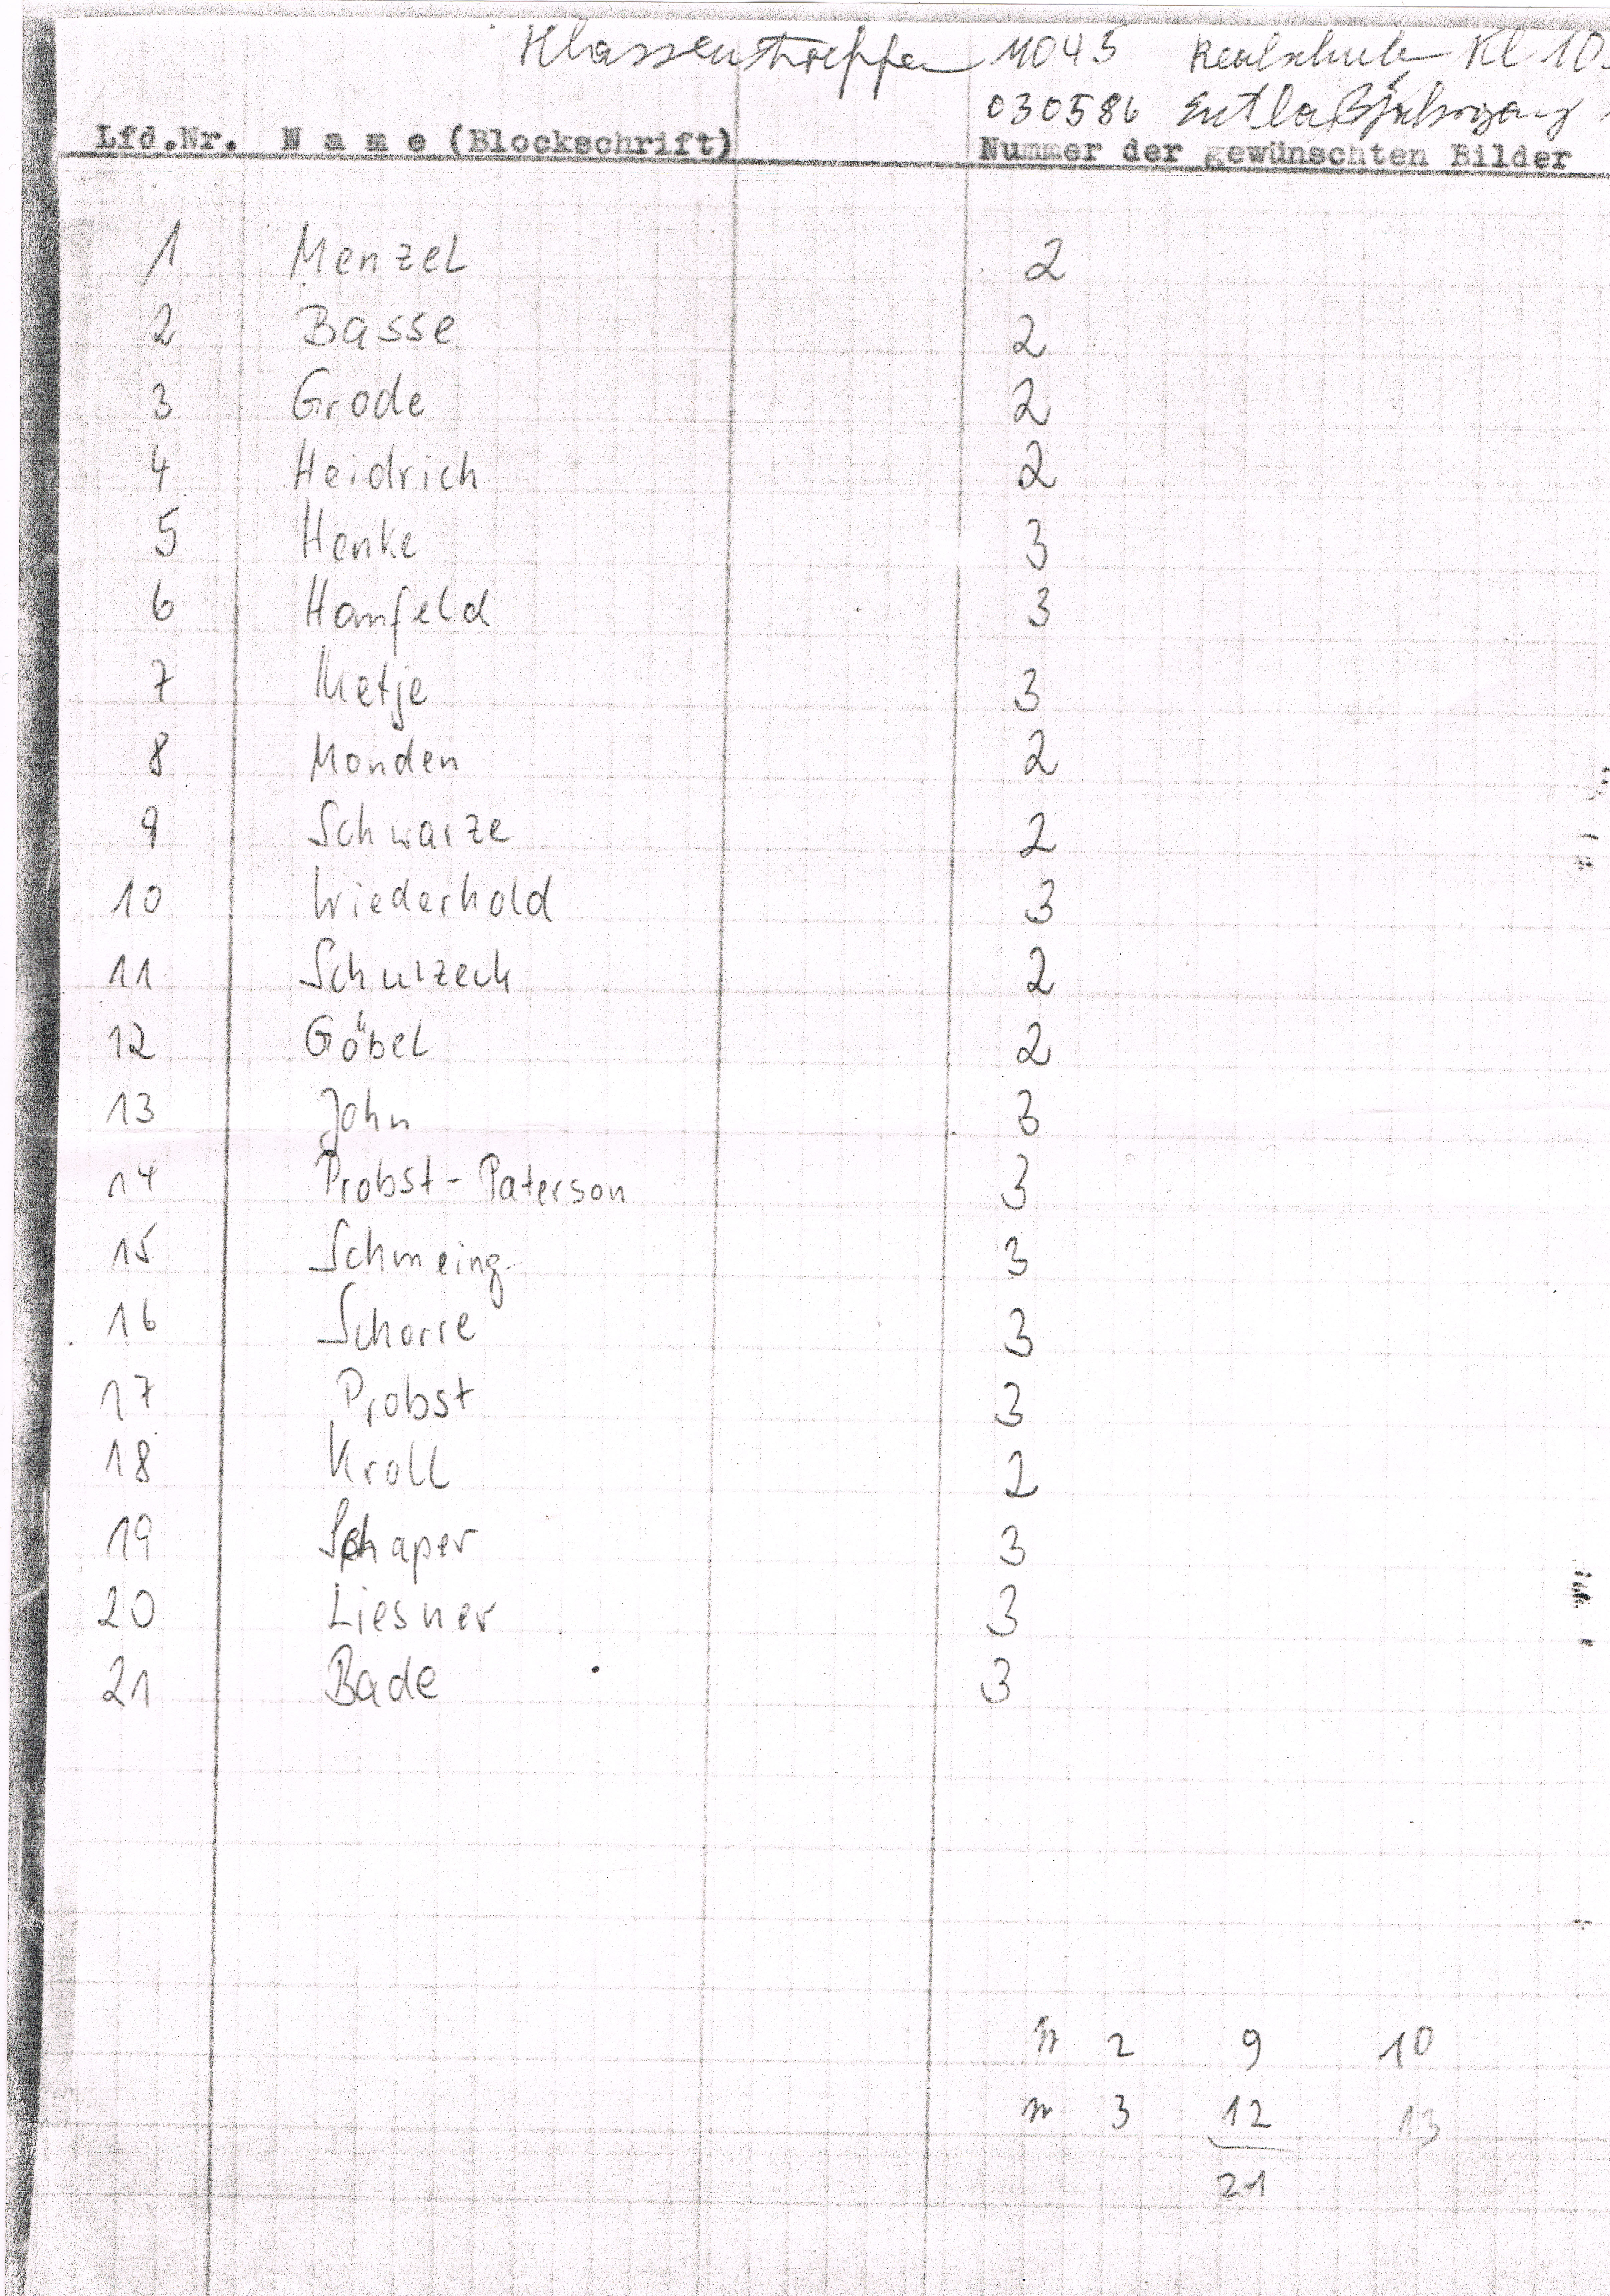 Klassentreffen 11045 Realschule Kl 10
030586 Entlaßjahrgang
Lfd.Nr. N a m e (Blockschrift) Nummer der gewünschten Bilder
1 Menzel 2
2 Basse 2
3 Grode 2
4 Heidrich 2
5 Henke 3
6 Hanfeld 3
7 Metje 3
8 Monden 2
9 Schwarze 2
10 Wiederhold 3
11 Schulzeck 2
12 Göbel 2
13 John 3
14 Probst-Paterson 3
15 Schmeing 3
16 Schorre 3
17 Probst 3
18 Kroll 2
19 Schaper 3
20 Liesner 3
21 Bade 3
2 9 10
3 12 13
21